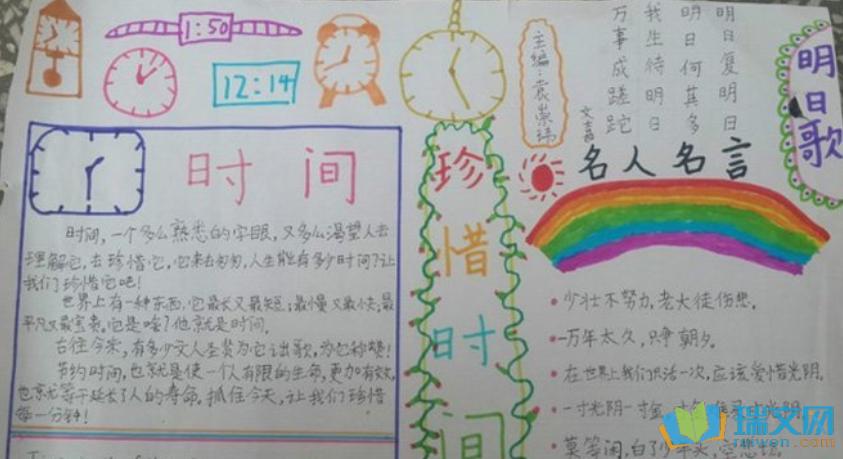 1:50
12:14
时间
时间,一个多么熟悉的字眼,又多么渴望人去
理解它,去珍惜它,它来去匆匆,人生能有多少时间?让
我们珍惜它吧!
世界上有一种东西,它最长又最短;最慢又最快;最
平凡又最宝贵,它是啥?他就是时间。
古往今来,有多少文人圣贤为它讴歌,为它称赞!
节约时间,也就是使一个人有限的生命,更加有效,
也就等于延长了人的寿命。抓住今天,让我们珍惜
每一分钟!
珍惜时间
主编:袁
文嘉
明日歌
明日复明日
明日何其多
我生待明日
万事成蹉跎
名人名言
少壮不努力,老大徒伤悲。
一万年太久,只争朝夕。
在世界上我们只活一次,应该爱惜光阴。
一寸光阴一寸金,寸光阴。
莫等闲,白了少年头,空悲切。
瑞文网
ruiwen.com